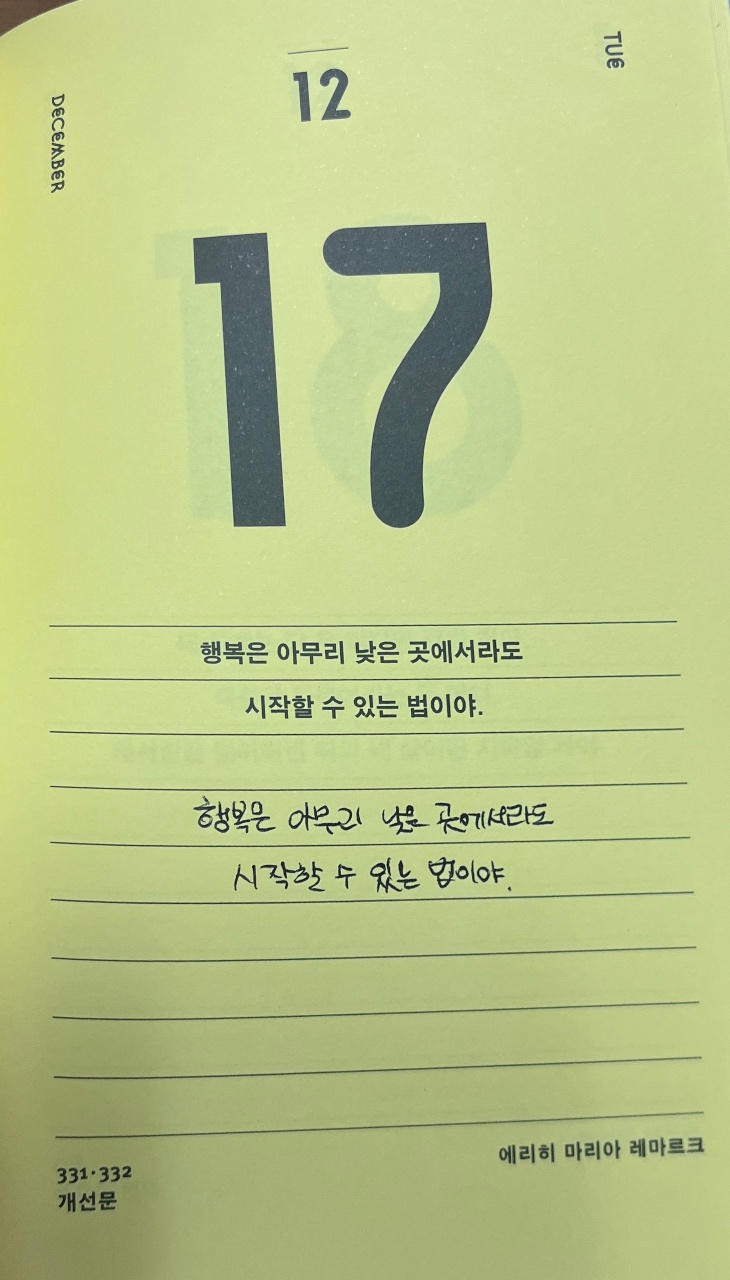 TUE
12
DECEMBER
17
행복은 아무리 낮은 곳에서라도
시작할 수 있는 법이야.
행복은 아무리 낮은 곳에서라도
시작할 수 있는 법이야.
에리히 마리아 레마르크
331·332
개선문